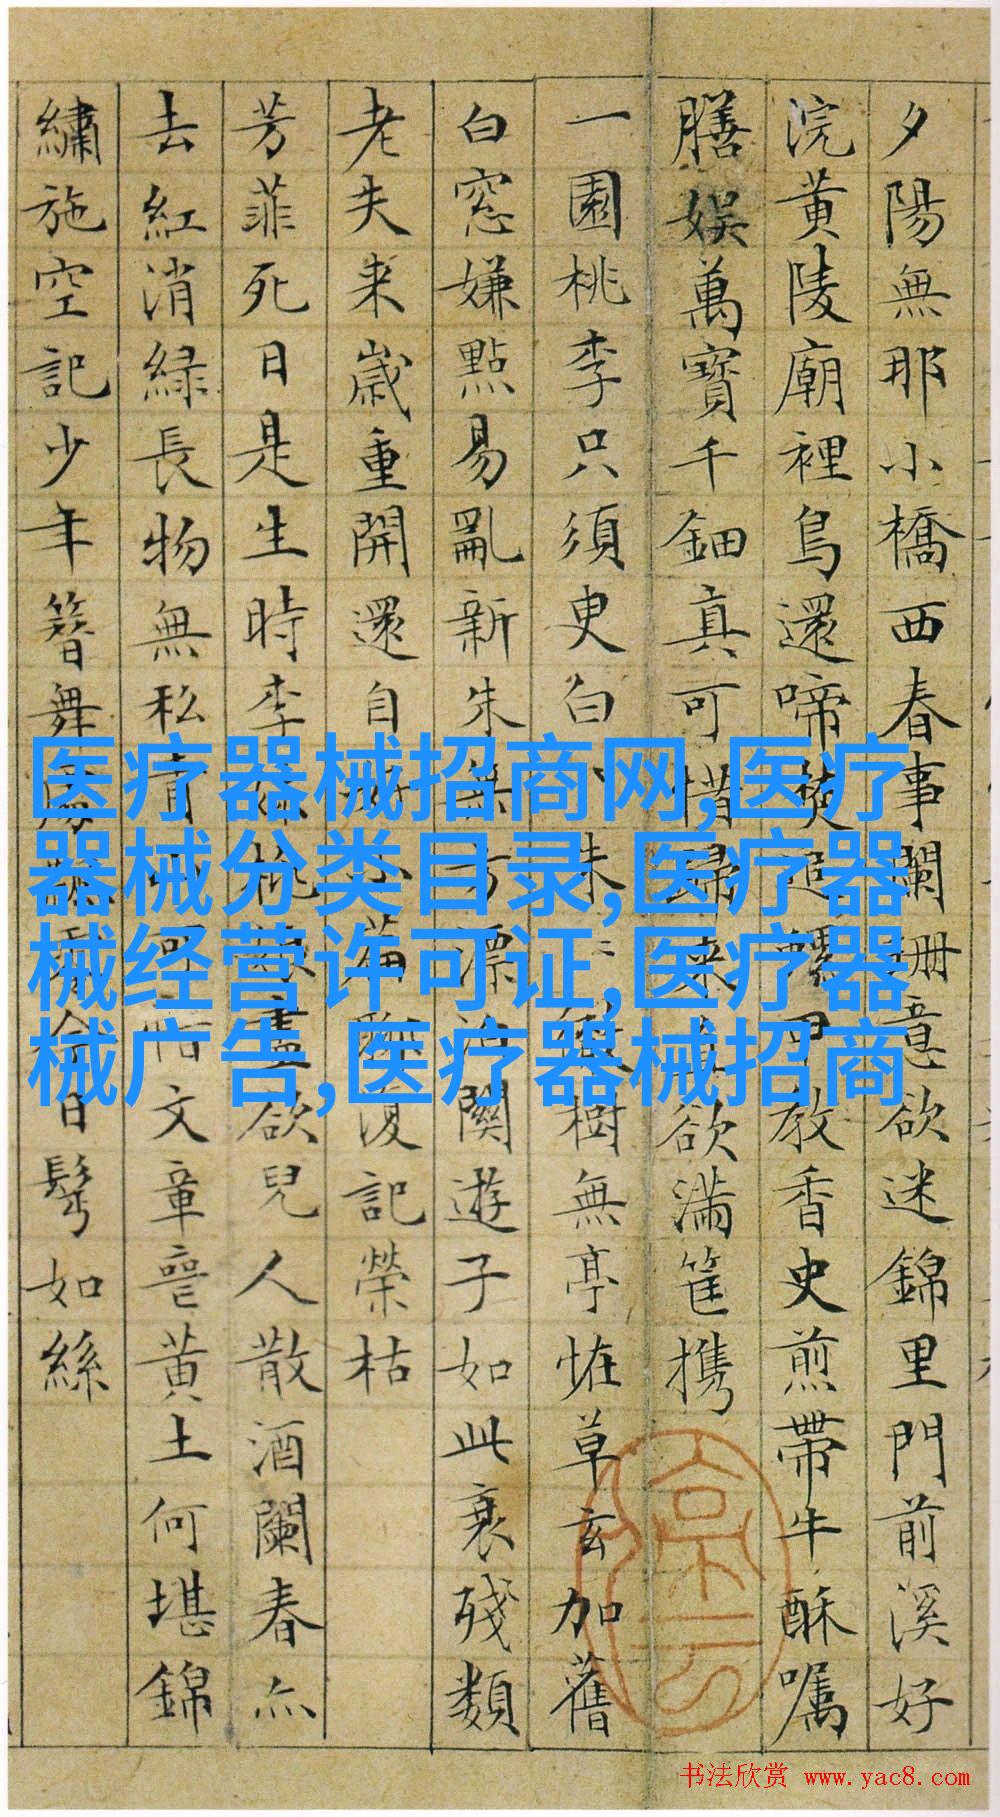 夕陽無那小橋西春事闌珊意欲迷錦里門前溪好
浣黄陵廟裡鳥還啼焚追螺甲教香史煎帶牛酥嘱
膳娱萬寳千鈿真可惜歸来直欲滿筐携
一園桃李只須臾白朱樹無亭恠草玄加舊
白窓嫌點易亂新朱無方漂泊關遊子如此衰残類
老夫来歲重開還自好小篇聊復記榮枯
芳菲死日是生時李妹桃娘盡欲兒人散酒闌春亦
去紅消緑長物無私青山可惜文章喪黄土何堪錦
繡施空記少年簪舞處飄零今日鬂如絲
医疗器械招商网,医疗
器械分类目录,医疗器
械经营许可证,医疗器
械广告,医疗器械招商
书法欣赏 www.yac8.com